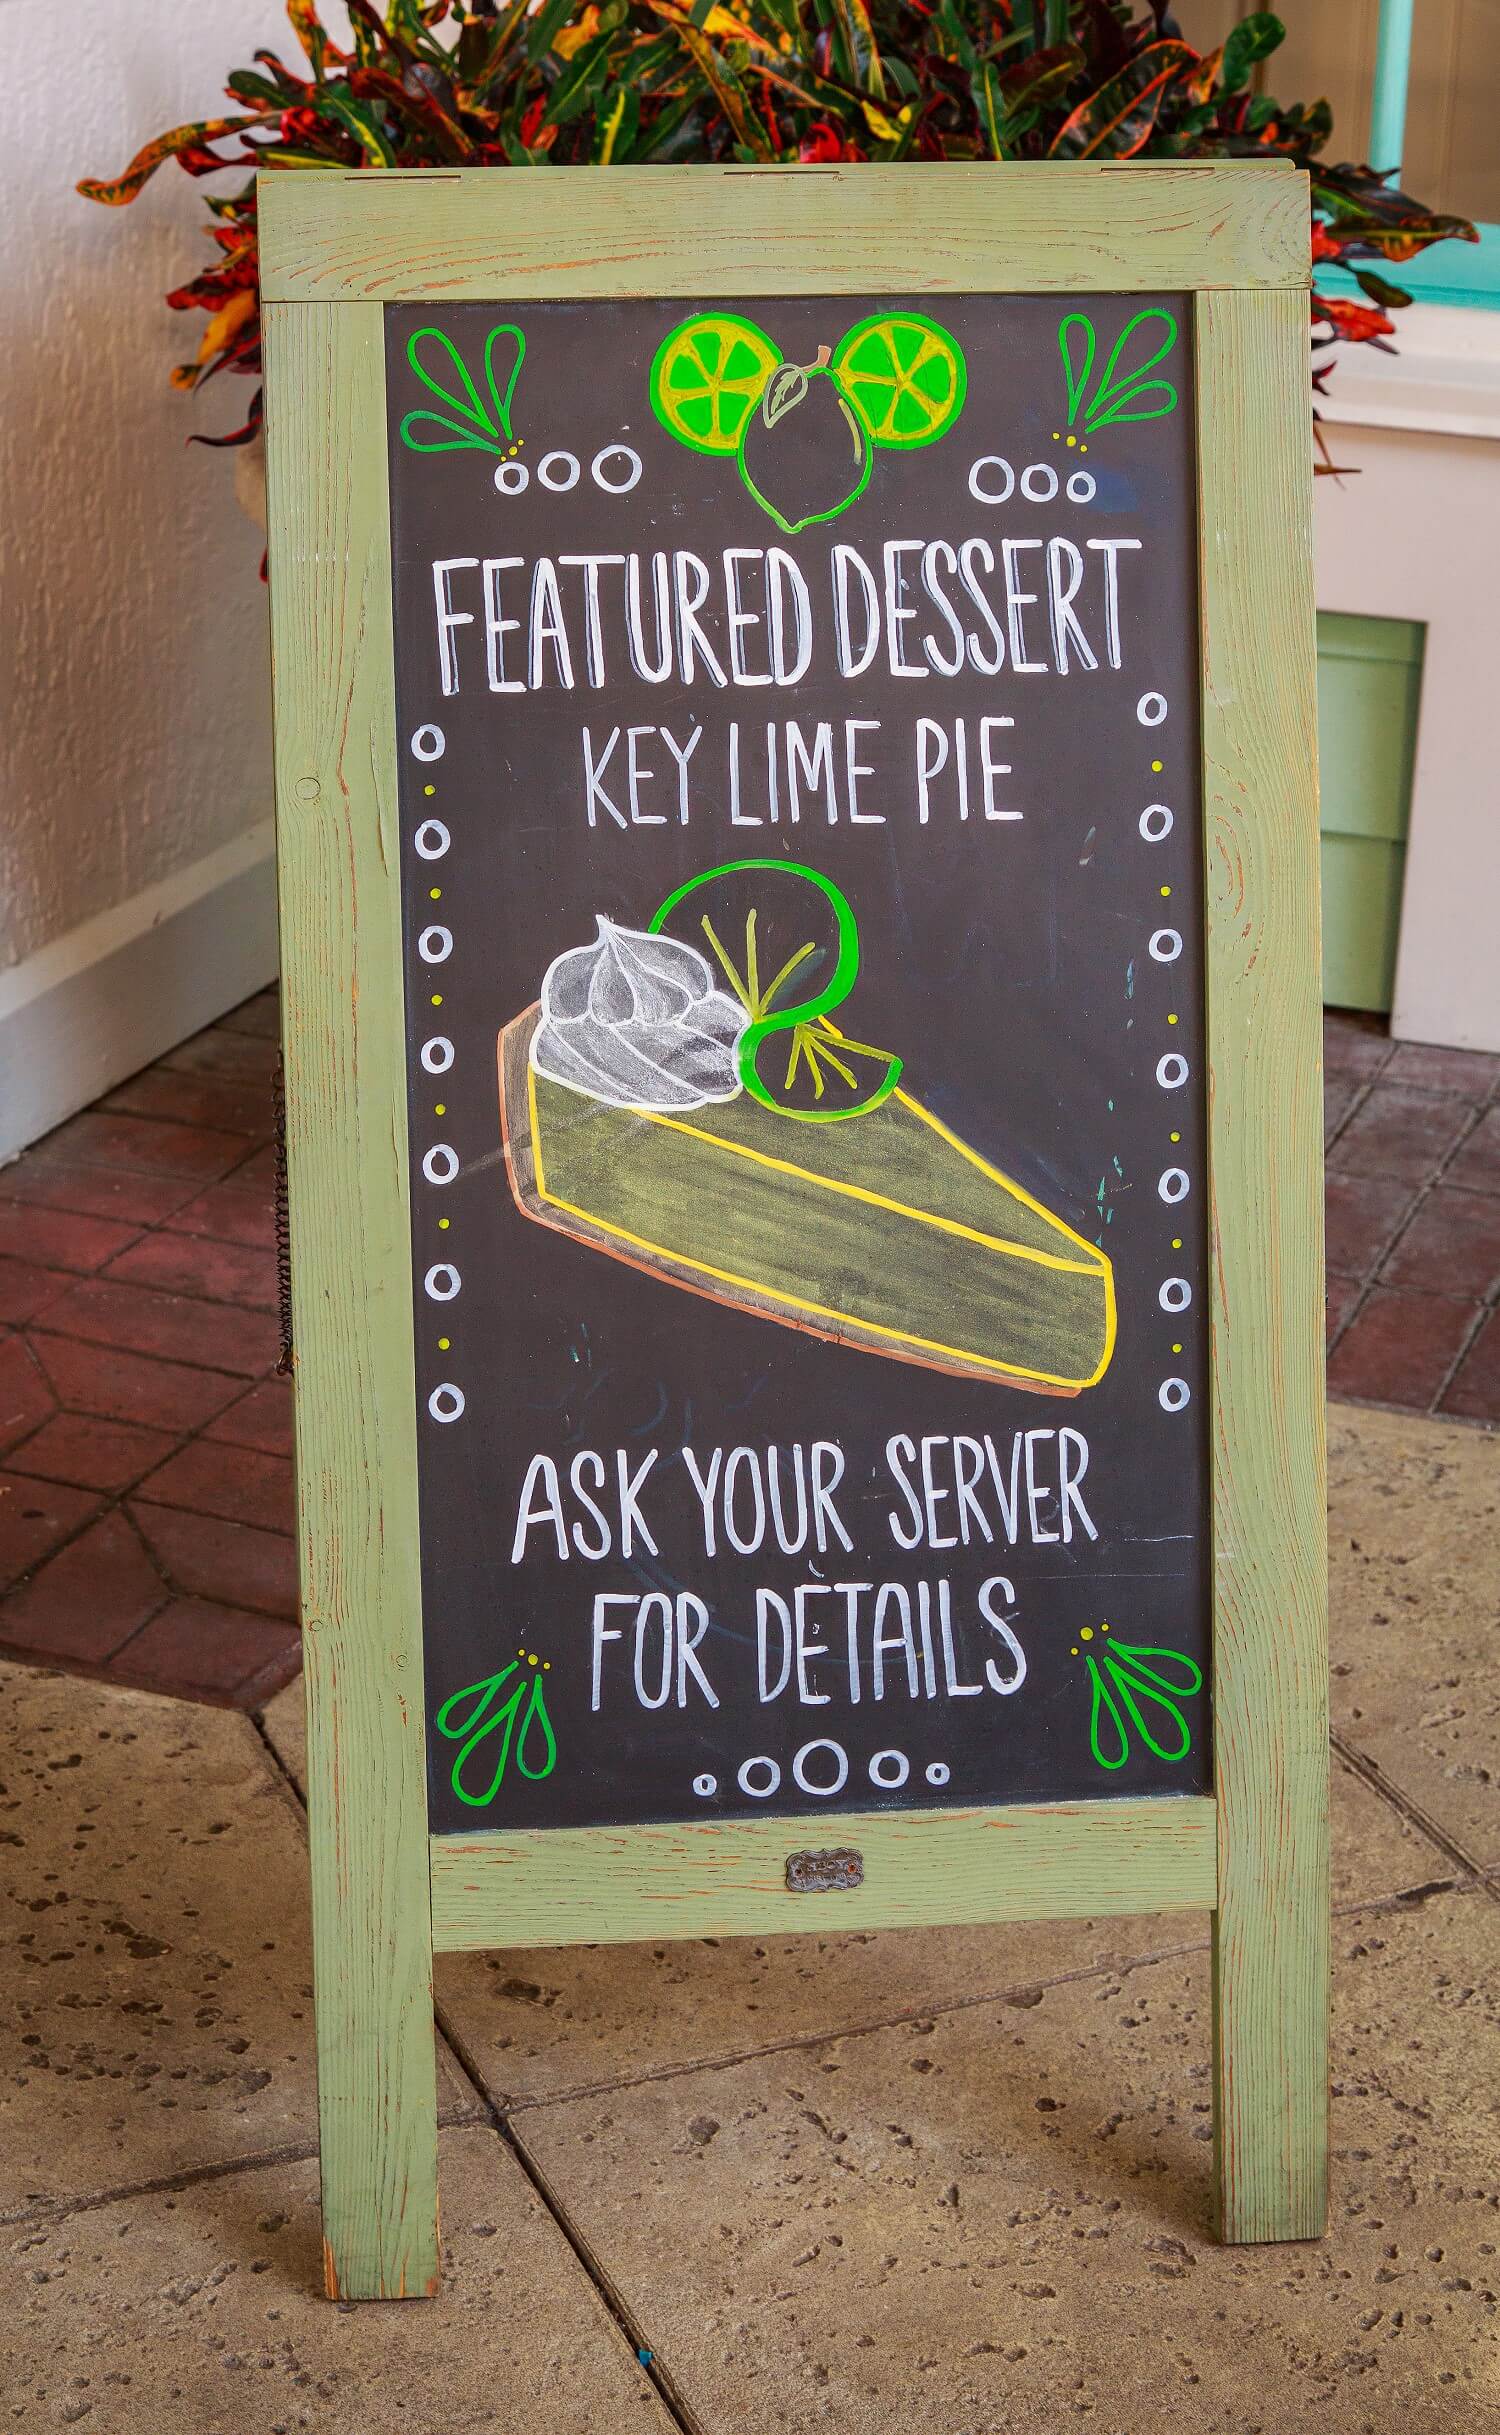 FEATURED DESSERT
KEY LIME PIE
ASK YOUR SERVER
FOR DETAILS